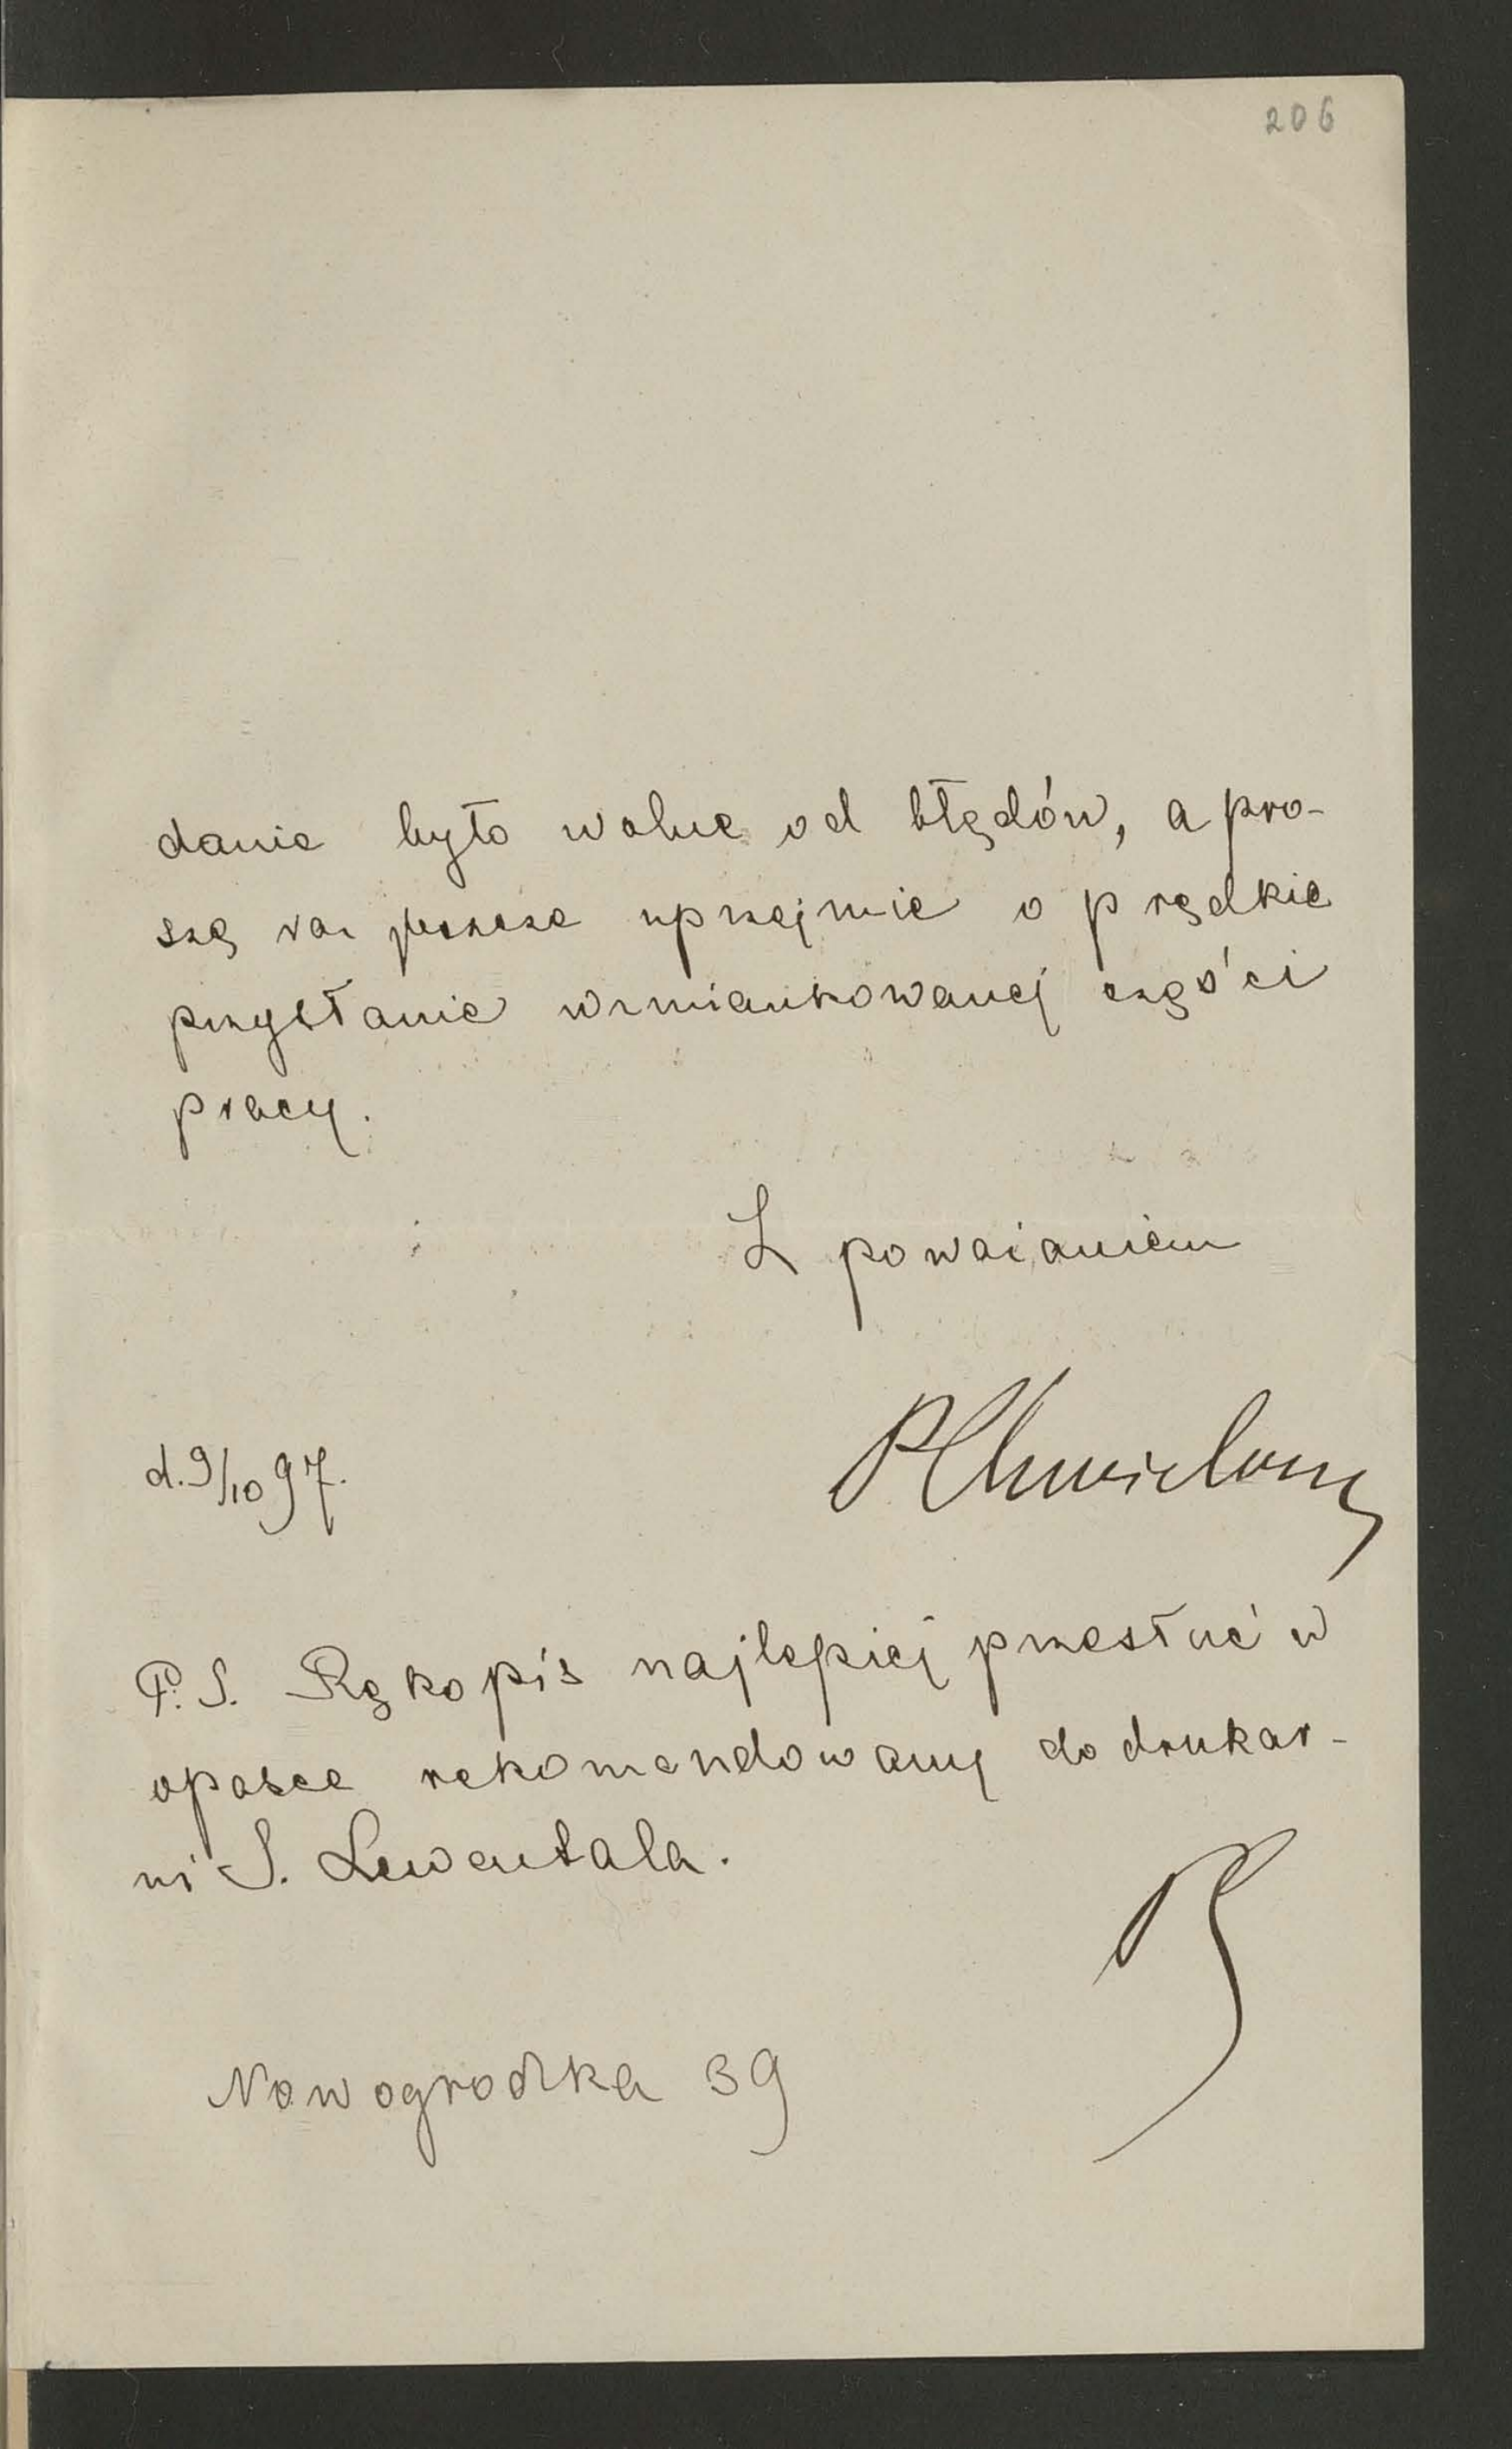 206
danie było wolne od błędów, a pro-
szę raz jeszcze uprzejmie o prędkie
przysłanie wzmiankowanej części
pracy.
Z poważaniem
d. 9/10 97.
PChmielows
P. S. Rękopis najlepiej przesłać w
opasce rekomendowany do drukar-
ni S. Lewentala.
Nowogrodzka 39